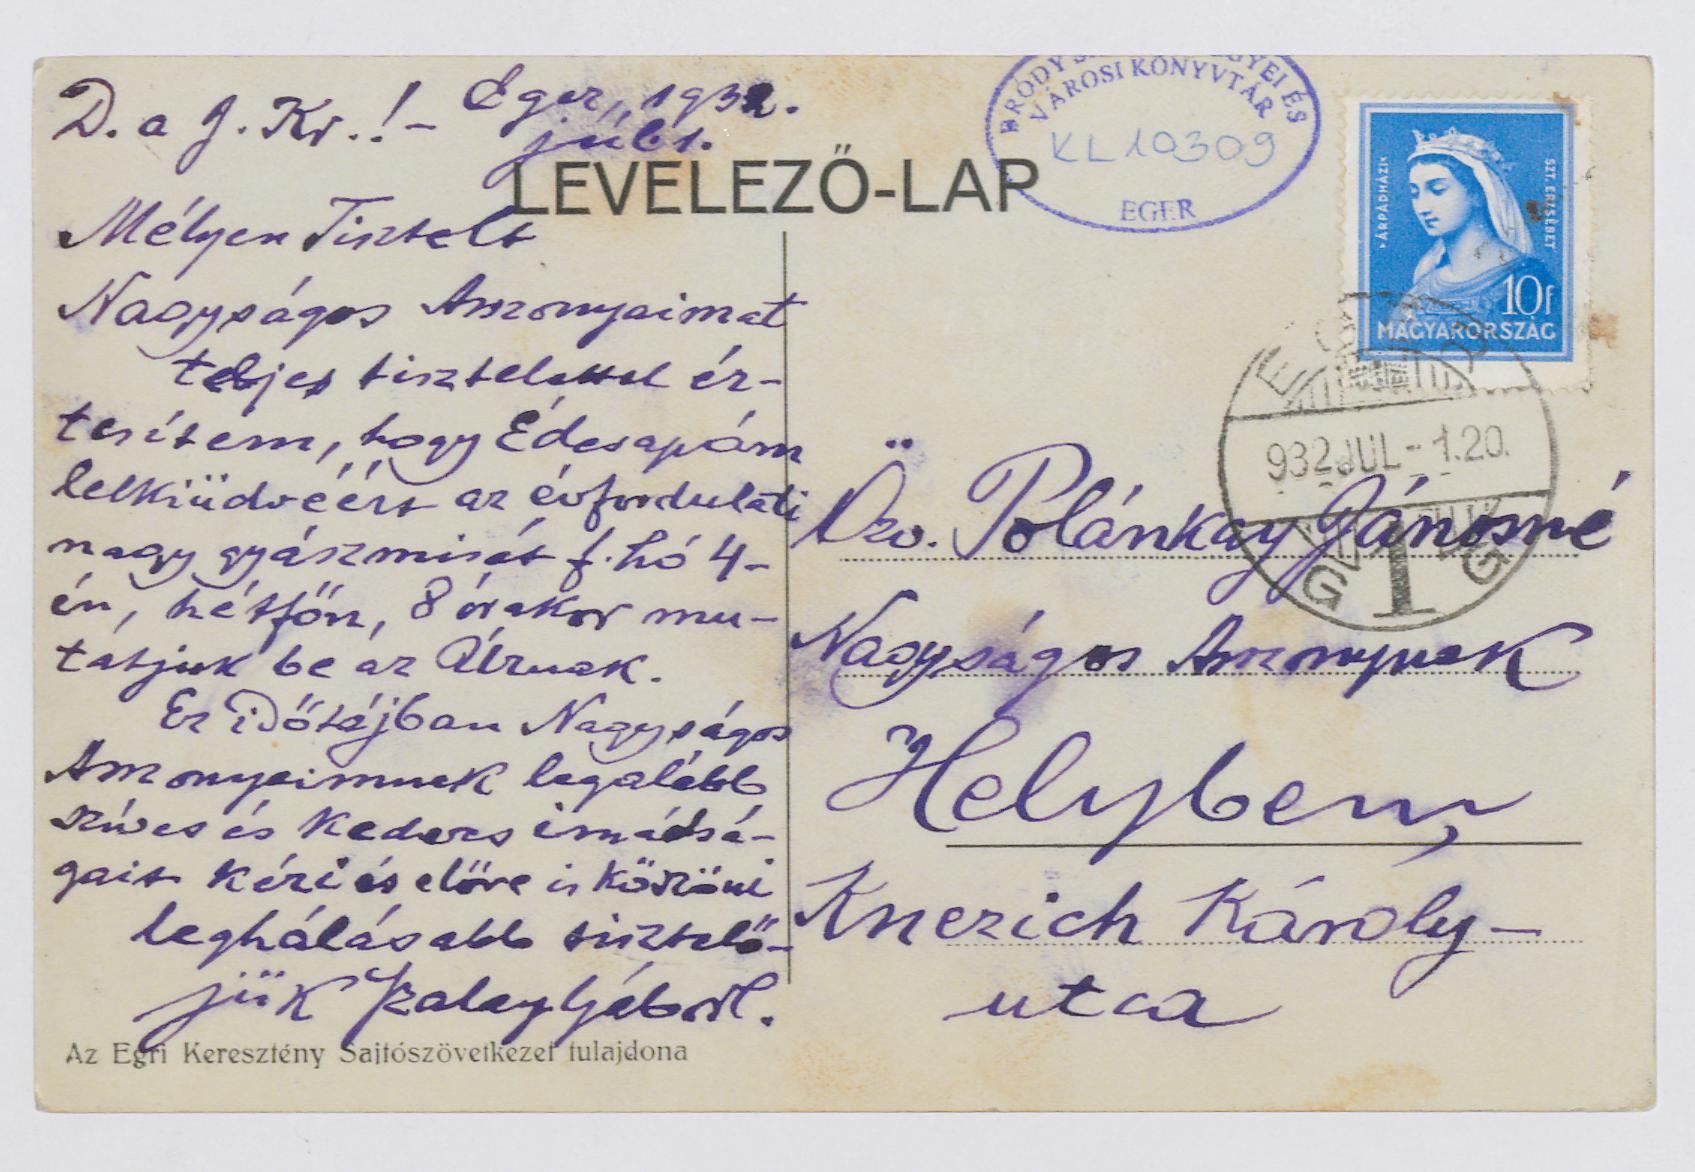 D. a J. Kr.! - Eger, 1932.
júl. 1.
LEVELEZŐ-LAP
Mélyen Tisztelt
Nagyságos Asszonyaimat
teljes tisztelettel ér-
tesítem, hogy Édesapám
lelkiüdvéért az évfordulati
nagy gyászmisét f. hó 4-
én, hétfőn, 8 órakor mu-
tatjuk be az Úrnak.
Ez időtájban Nagyságos
Asszonyaimnak legalább
szíves és kedves imádsá-
gait kéri és előre is köszöni
leghálásabb tisztelő-
jük
Az Egri Keresztény Sajtószövetkezet tulajdona
BRÓDY GYEI ÉS
VÁROSI KÖNYVTÁR
KL 10309
EGER
ÁRPÁDHÁZI
SZT. ERZSÉBET
10f
MAGYARORSZÁG
EGER
932 JUL - 1. 20.
G 1 G
Özv. Polánkay Jánosné
Nagyságos Asszonynak
Helyben,
Knezich Károly-
utca